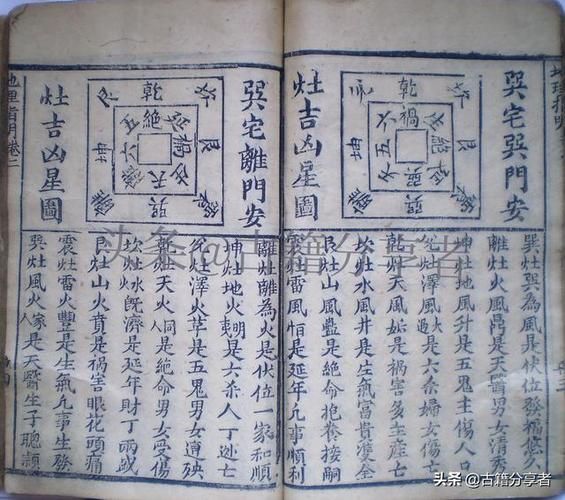 巽宅巽門安
乾
艮
巽
坤
禍
灶吉凶星圖
巽灶巽為風是伏位發福悠
離灶火風鼎是天醫男女清秀
坤灶地風升是五鬼主傷人口
兌灶澤風大過是六杀婦女傷亡
乾灶天風姤是禍害多主產亡
坎灶水風井是生氣富貴双全
艮灶山風蠱是絕命抱養接嗣
震灶雷風恒是延年凡事順利
巽宅離門安
乾
艮
巽
坤
絕
灶吉凶星圖
離灶離為火是伏位一家和順
坤灶地火明夷是六杀人丁逃亡
兌灶澤火革是五鬼男女遭殃
乾灶天火同人是絕命男女受傷
坎灶水火既濟是延年財丁兩盛
艮灶山火賁是禍害眼花頭痛
震灶雷火豐是生氣凡事生發
巽灶風火家人是天醫生子聰穎
地理指明卷二
头条@古籍分享者
头条@古籍分享者